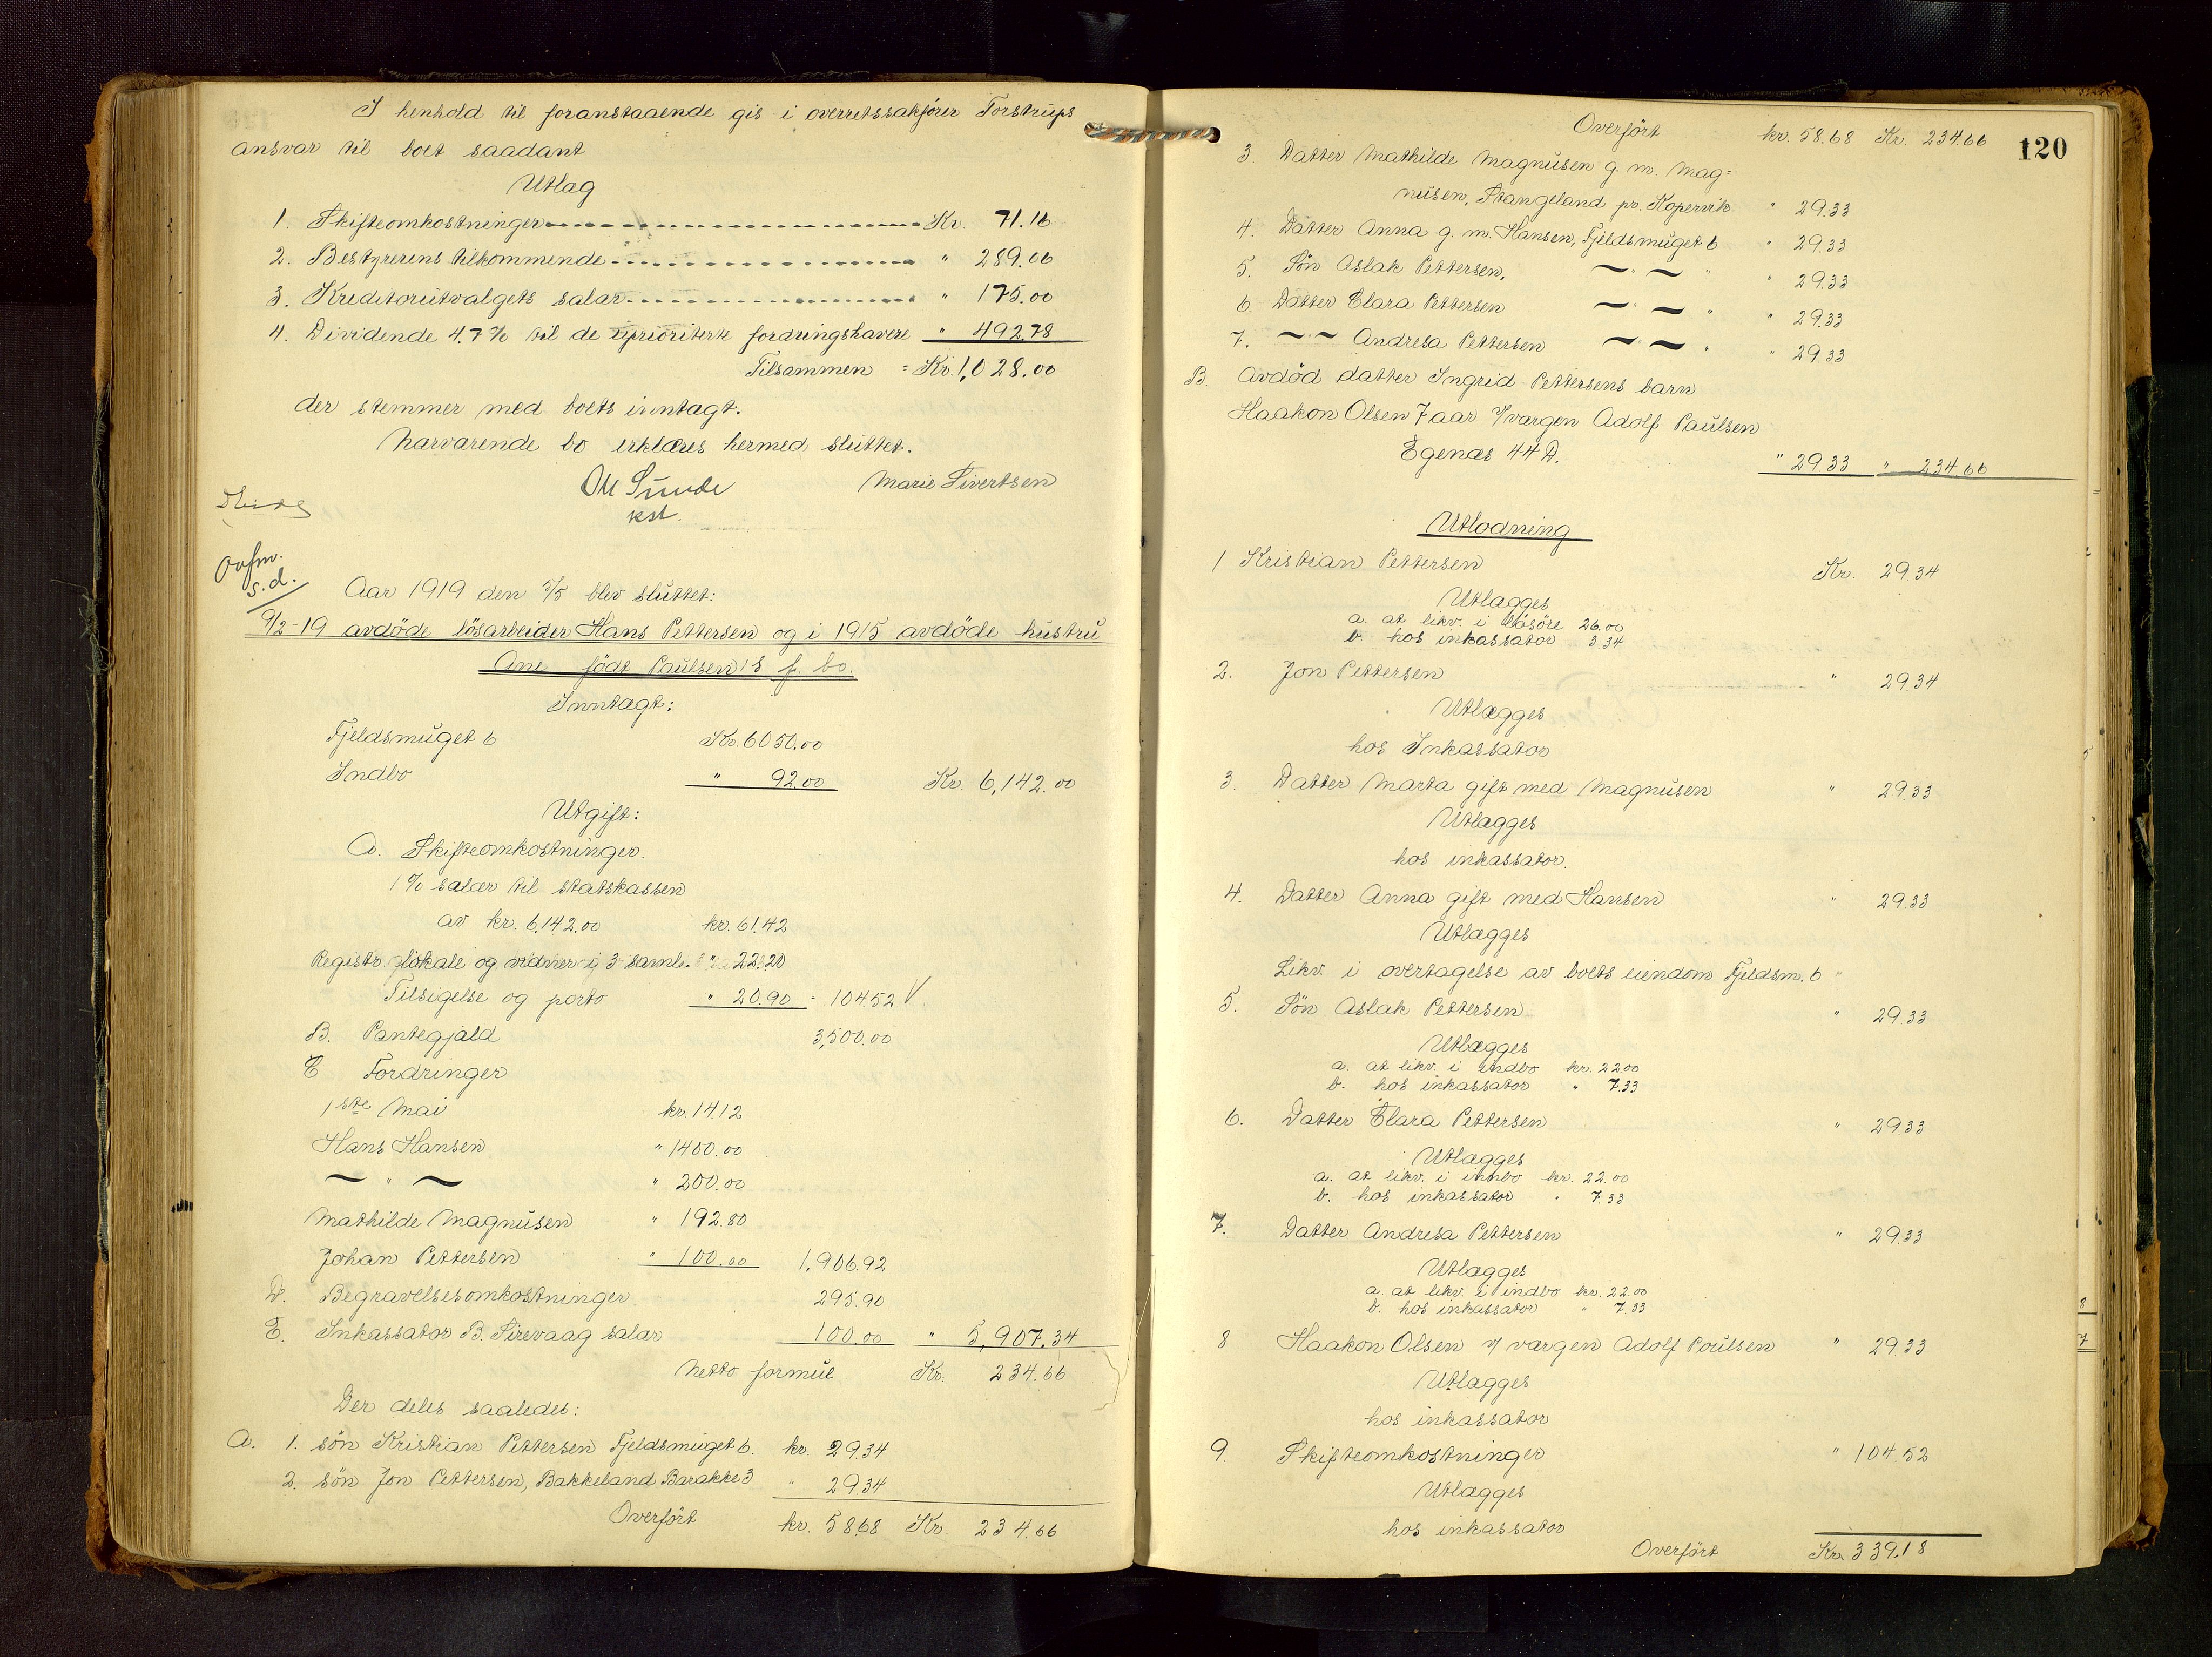 I henhold til foranstaaende gis i overretssakförer Torstrups
ansvar til boet saadant
Utlag
1. Skifteomkostninger Kr. 71.16
2. Bestyrerens tilkommende " 289.06
3. Kreditorutvalgets salar " 175.00
4. Dividende 4.7% til de uprioriterte fordringshavere " 492.78
Tilsammen = Kr. 1,028.00
der stemmer med boets inntagt.
Narvarende bo erklæres hermed sluttet.
Marie Sivertsen
kst.
s.d.
Aar 1919 den 5/5 blev sluttet:
9/2-19 avdöde lösarbeider Hans Pettersen og i 1915 avdöde hustru
Ane födt Paulsen's f. bo.
Inntagt:
Fjeldsmuget 6 Kr. 6050.00
Indbo " 92.00 Kr. 6,142.00
Utgift:
A. Skifteomkostninger.
1% salær til statskassen
av kr. 6,142.00 kr. 61.42
Registr. lokale og vidner i 3 saml. " 22.20
Tilsigelse og porto " 20.90 = 104.52 V
B. Pantegjæld 3,500.00
C Fordringer
1ste Mai kr. 14.12
Hans Hansen " 1400.00
— " — " 200.00
Mathilde Magnusen " 192.80
Johan Pettersen " 100.00 1,906.92
D. Begravelsesomkostninger 295.90
E. Inkassator B. Sirevaag salar 100.00 " 5,907.34
Netto formue Kr. 234.66
Der deles saaledes:
A. 1. sön Kristian Pettersen Fjeldsmuget 6. kr. 29.34
2. sön Jon Pettersen, Bakkeland Barakke 3 " 29.34
Overfört kr. 58.68 Kr. 234.66
120
Overfört kr. 58.68 Kr. 234.66
3. Datter Mathilde Magnusen g. m. Mag=
nusen, Stangeland pr. Kopervik " 29.33
4. Datter Anna g. m. Hansen, Fjeldsmuget 6 " 29.33
5. Sön Aslak Pettersen, — " — " " 29.33
6. Datter Clara Pettersen — " — " " 29.33
7. — " — Andrea Pettersen — " — " " 29.33
B. Avdöd datter Ingrid Pettersens barn
Haakon Olsen 7 aar v/vargen Adolf Paulsen
Egenæs 44 D. " 29.33 " 234.66
Utlodning
1 Kristian Pettersen Kr. 29.34
Utlægges
a. at likv. i lösöre 26.00
b. hos inkassator 3.34
2. Jon Pettersen " 29.34
Utlægges
hos Inkassator
3. Datter Marta gift med Magnusen " 29.33
Utlægges
hos inkassator.
4. Datter Anna gift med Hansen " 29.33
Utlægges
Likv. i overtagelse av boets eiendom Fjeldsm. 6 "
5. Sön Aslak Pettersen " 29.33
Utlægges
a. at likv. i indbo kr. 22.00
b. hos inkassator " 7.33
6. Datter Clara Pettersen " 29.33
Utlægges
a. at likv. i innbo kr. 22.00
b. hos inkassator " 7.33
7. Datter Andrea Pettersen " 29.33
Utlægges
a. at likv. i indbo kr. 22.00
b. hos inkassator " 7.33
8 Haakon Olsen v/ vargen Adolf Poulsen " 29.33
Utlægges
hos inkassator
9. Skifteomkostninger " 104.52
Utlægges
hos inkassator
Overfört Kr. 339.18